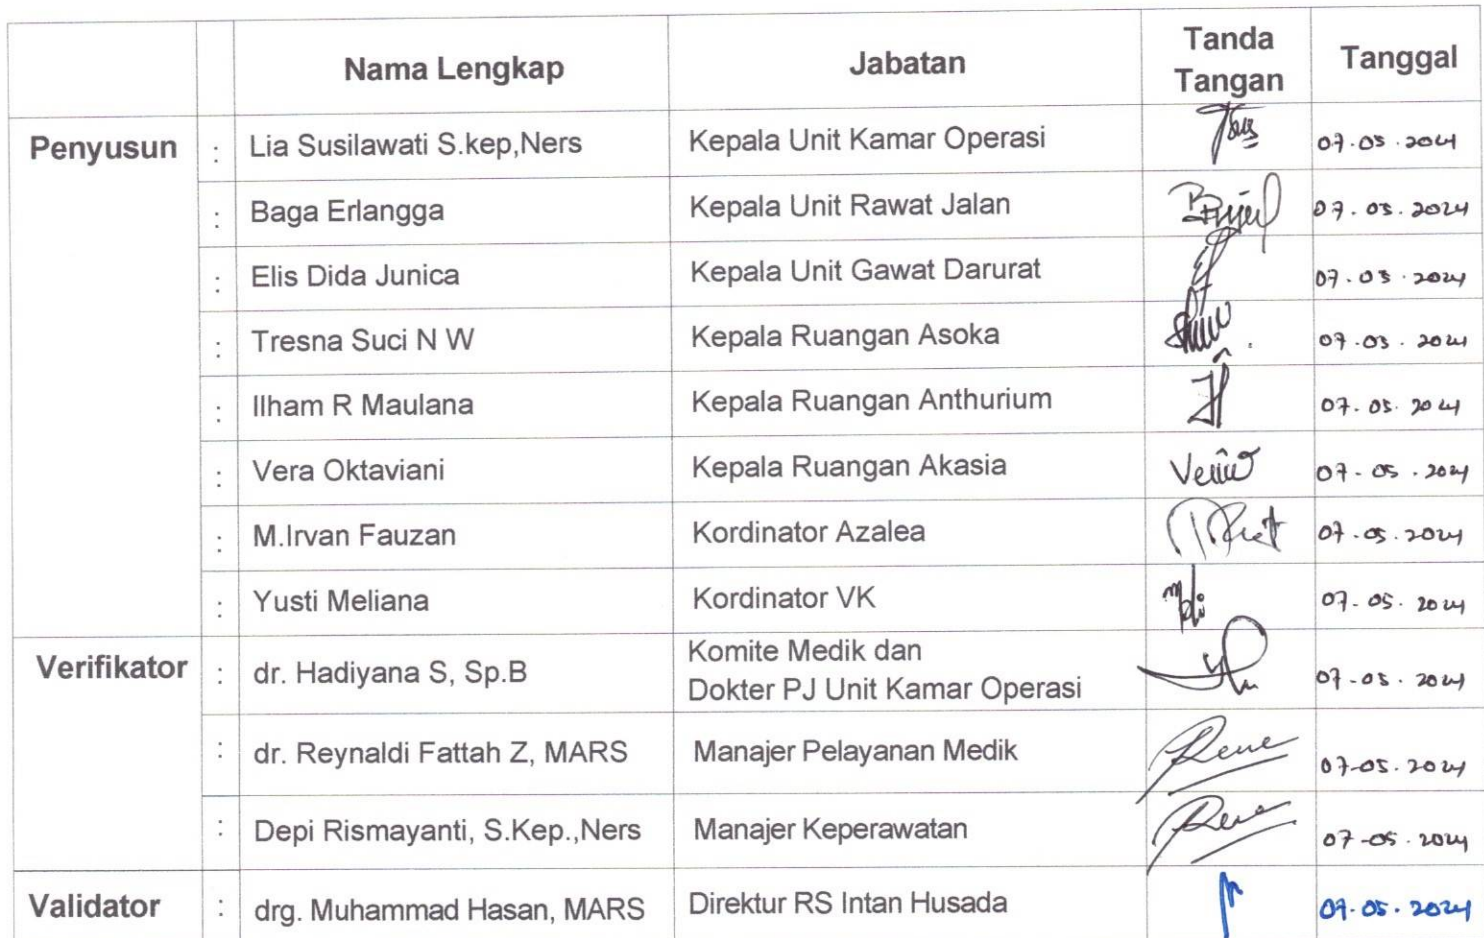 Nama Lengkap Jabatan Tanda Tangan Tanggal
Penyusun : Lia Susilawati S.kep,Ners Kepala Unit Kamar Operasi 07.05.2024
: Baga Erlangga Kepala Unit Rawat Jalan 07.05.2024
: Elis Dida Junica Kepala Unit Gawat Darurat 07.05.2024
: Tresna Suci N W Kepala Ruangan Asoka 07.05.2024
: Ilham R Maulana Kepala Ruangan Anthurium 07.05.2024
: Vera Oktaviani Kepala Ruangan Akasia 07-05.2024
: M.Irvan Fauzan Kordinator Azalea 07.05.2024
: Yusti Meliana Kordinator VK 07-05.2024
Verifikator : dr. Hadiyana S, Sp.B Komite Medik dan
Dokter PJ Unit Kamar Operasi 07-05.2024
: dr. Reynaldi Fattah Z, MARS Manajer Pelayanan Medik 07-05.2024
: Depi Rismayanti, S.Kep.,Ners Manajer Keperawatan 07-05.2024
Validator : drg. Muhammad Hasan, MARS Direktur RS Intan Husada 07.05.2024